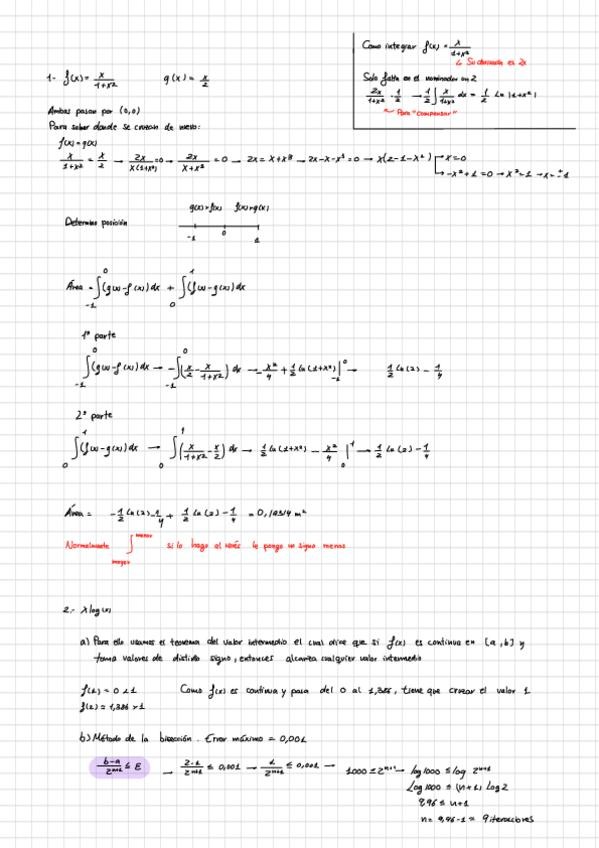 Como integrar f(x) = x/(1+x²)
↳ Su derivada es 2x
Solo falta en el numerador un 2
2x/(1+x²) · 1/2 → 1/2 ∫ x/(1+x²) dx = 1/2 Ln |1+x²|
Para "compensar"
1.- f(x) = x/(1+x²) g(x) = x/2
Ambas pasan por (0,0)
Para saber donde se cruzan de nuevo:
f(x) = g(x)
x/(1+x²) = x/2 → 2x/(x(1+x²)) = 0 → 2x/(x+x³) = 0 → 2x = x+x³ → 2x-x-x³ = 0 → x(2-1-x²) x=0
→ -x²+1 = 0 → x² = 1 → x = ±1
g(x)>f(x) f(x)>g(x)
Determino posición
-1 0 1
Área = ∫₋₁⁰ (g(x)-f(x)) dx + ∫₀¹ (f(x)-g(x)) dx
1ª parte
∫₋₁⁰ (g(x)-f(x)) dx → -∫₋₁⁰ (x/2 - x/(1+x²)) dx → -x²/4 + 1/2 Ln(1+x²) |₋₁⁰ → 1/2 Ln(2) - 1/4
2ª parte
∫₀¹ (f(x)-g(x)) dx → ∫₀¹ (x/(1+x²) - x/2) dx → 1/2 Ln(1+x²) - x²/4 |₀¹ → 1/2 Ln(2) - 1/4
Área = -1/2 Ln(2)-1/4 + 1/2 Ln(2) - 1/4 = 0,1931 u²
Normalmente ∫ menor mayor si lo hago al revés le pongo un signo menos
2.- x log(x)
a) Para ello usamos el teorema del valor intermedio el cual dice que si f(x) es continua en [a,b] y
toma valores de distinto signo, entonces alcanza cualquier valor intermedio
f(1) = 0 < 1 Como f(x) es continua y pasa del 0 al 1,386, tiene que cruzar el valor 1
f(2) = 1,386 > 1
b) Método de la bisección. Error máximo = 0,001
(b-a)/2ⁿ⁺¹ ≤ E → (2-1)/2ⁿ⁺¹ ≤ 0,001 → 1/2ⁿ⁺¹ ≤ 0,001 → 1000 ≤ 2ⁿ⁺¹ → log 1000 ≤ log 2ⁿ⁺¹
Log 1000 ≤ (n+1) Log 2
9,96 ≤ n+1
n = 9,96-1 ≈ 9 iteraciones